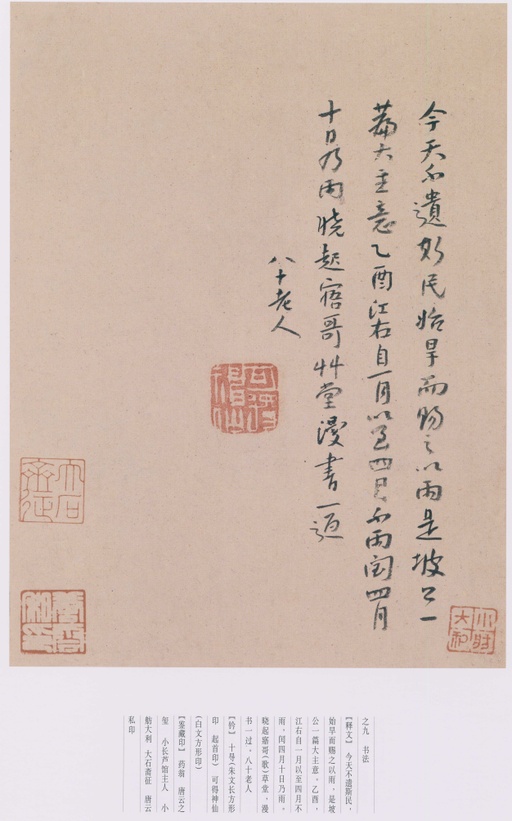 今天不遗斯民始旱而賜之以雨是坡公一
篇大主意乙酉江右自一月以至四月不雨閏四月
十日乃雨曉起寤哥艸堂漫書一過
八十老人
可得神仙
大石斋征
唐云私印
之九　书法
【释文】 今天不遗斯民，
始旱而赐之以雨，是坡
公一篇大主意，乙酉，
江右自一月以至四月不
雨，闰四月十日乃雨，
晓起寤哥（歌）草堂，漫
书一过，八十老人
【钤】 十号（朱文长方形
印　起首印） 可得神仙
（白文方形印）
【鉴藏印】 药翁　唐云之
玺　小长芦馆主人　小
舫大利　大石斋征　唐云
私印